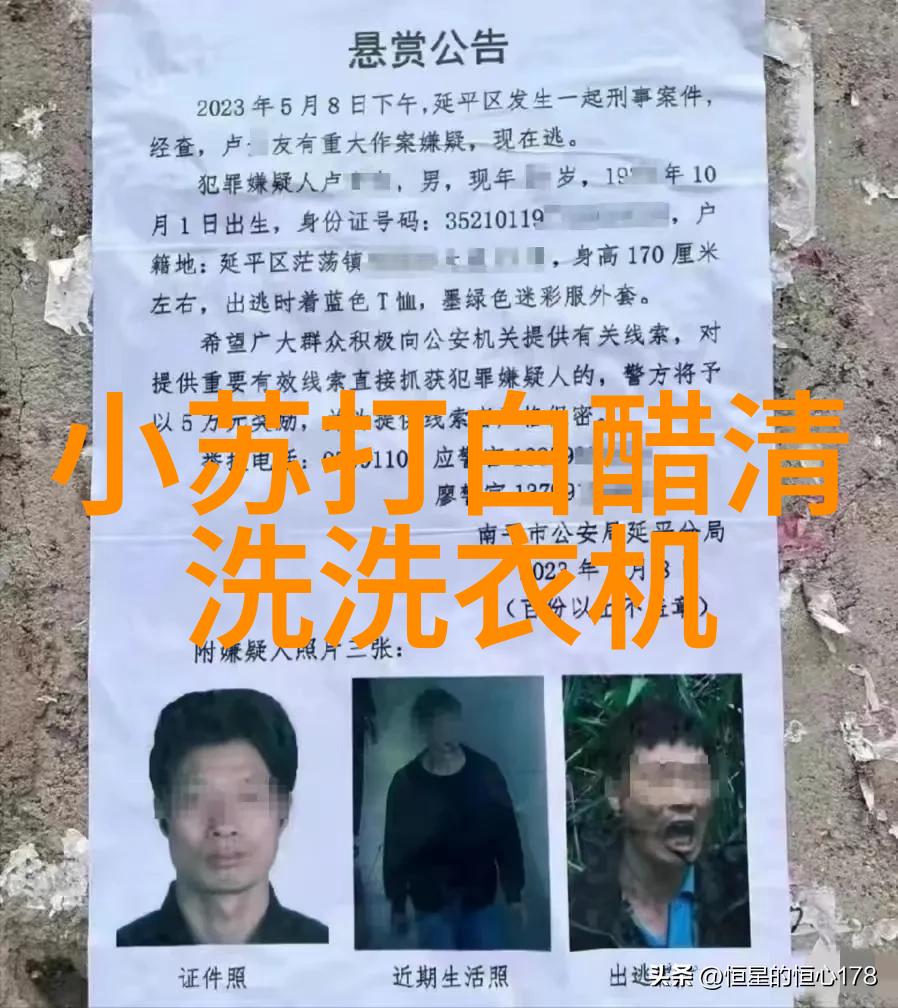 悬赏公告
2023年5月8日下午,延平区发生一起刑事案件,
经查,卢 友有重大作案嫌疑,现在逃。
犯罪嫌疑人卢 ,男,现年 岁,19 年10
月1日出生,身份证号码:35210119 ,户
籍地:延平区茫荡镇 ,身高170厘米
左右,出逃时着蓝色T恤,墨绿色迷彩服外套。
希望广大群众积极向公安机关提供有关线索,对
提供重要有效线索直接抓获犯罪嫌疑人的,警方将予
以5万元奖励,
小苏打白醋清
洗洗衣机
应警官
廖警官
南平市公安局延平分局
(百份以上不盖章)
附嫌疑人照片三张:
证件照
近期生活照
出逃
头条 @恒星的恒心178